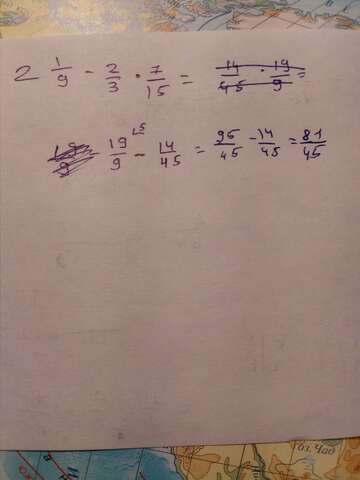 2 1/9 - 2/3 · 7/15 = 14/45 · 19/9 =
19/9 19/9 ⌞5 - 14/45 = 95/45 - 14/45 = 81/45
оз. Чад